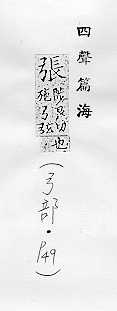 四聲篇海
張 陟良切也
施弓弦
(弓部·149)